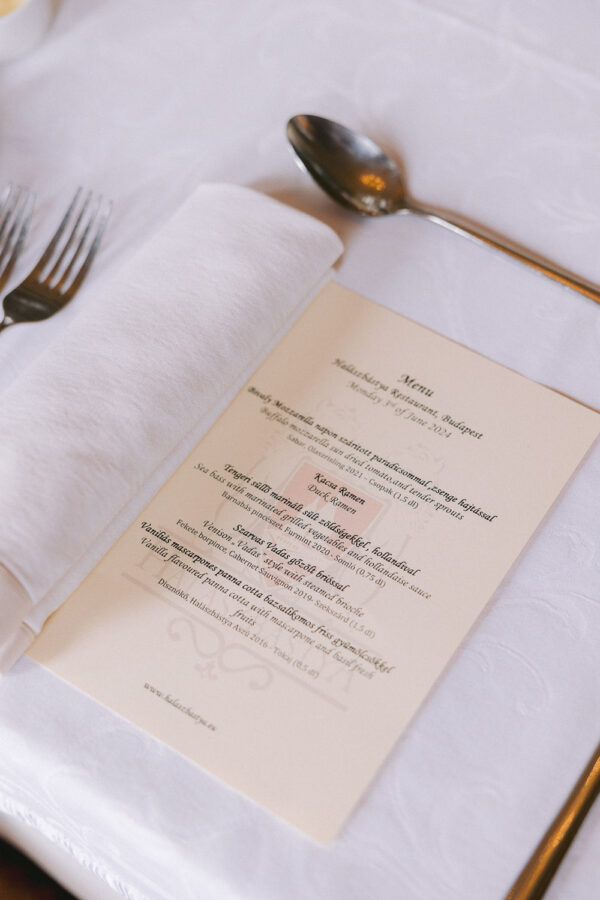 Menu
Halászbástya Restaurant, Budapest
Monday 3rd of June 2024
Bivaly Mozzarella napon szárított paradicsommal, zsenge hajtással
Buffalo mozzarella sun dried tomato, and tender sprouts
Sabar, Olaszrizling 2021 - Csopak (1,5 dl)
Kacsa Ramen
Duck Ramen
Tengeri süllő marinált sült zöldségekkel, hollandival
Sea bass with marinated grilled vegetables and hollandaise sauce
Barnabás pincészet, Furmint 2020 - Somló (0,75 dl)
Szarvas Vadas gőzölt brióssal
Venison „Vadas" style with steamed brioche
Fekete borpince, Cabernet Sauvignon 2019- Szekszárd (1.5 dl)
Vaníliás mascarpones panna cotta bazsalikomos friss gyümölcsökkel
Vanilla flavoured panna cotta with mascarpone and basil fresh
fruits
Disznókő, Halászbástya Aszú 2016 - Tokaj (0,5 dl)
www.halaszbastya.eu